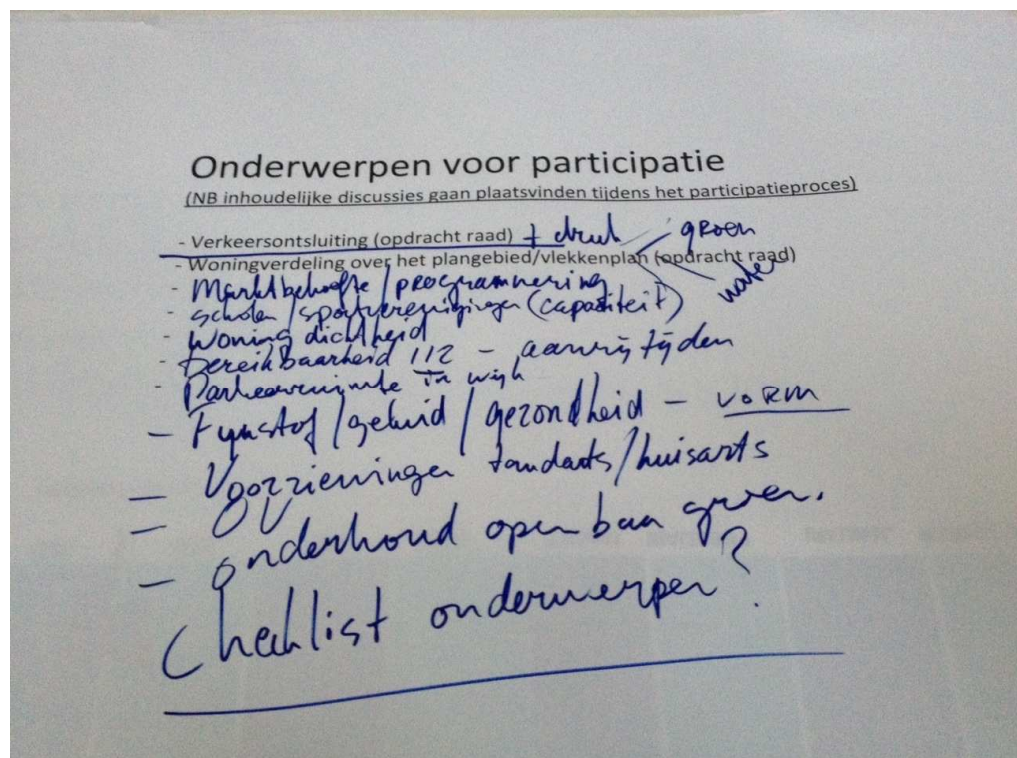 Onderwerpen voor participatie
(NB inhoudelijke discussies gaan plaatsvinden tijdens het participatieproces)
- Verkeersontsluiting (opdracht raad) + druk
groen
- Woningverdeling over het plangebied/vlekkenplan (opdracht raad)
water
- Marktbehoefte / programmering
- scholen / sportverenigingen (capaciteit)
- Woning dichtheid
- Bereikbaarheid 112 - aanrijtijden
- Parkeerruimte in wijk
- Fijnstof / geluid / gezondheid - vorm
- Voorzieningen tandarts/huisarts
- OV
- onderhoud openbaar groen.
Checklist onderwerpen?